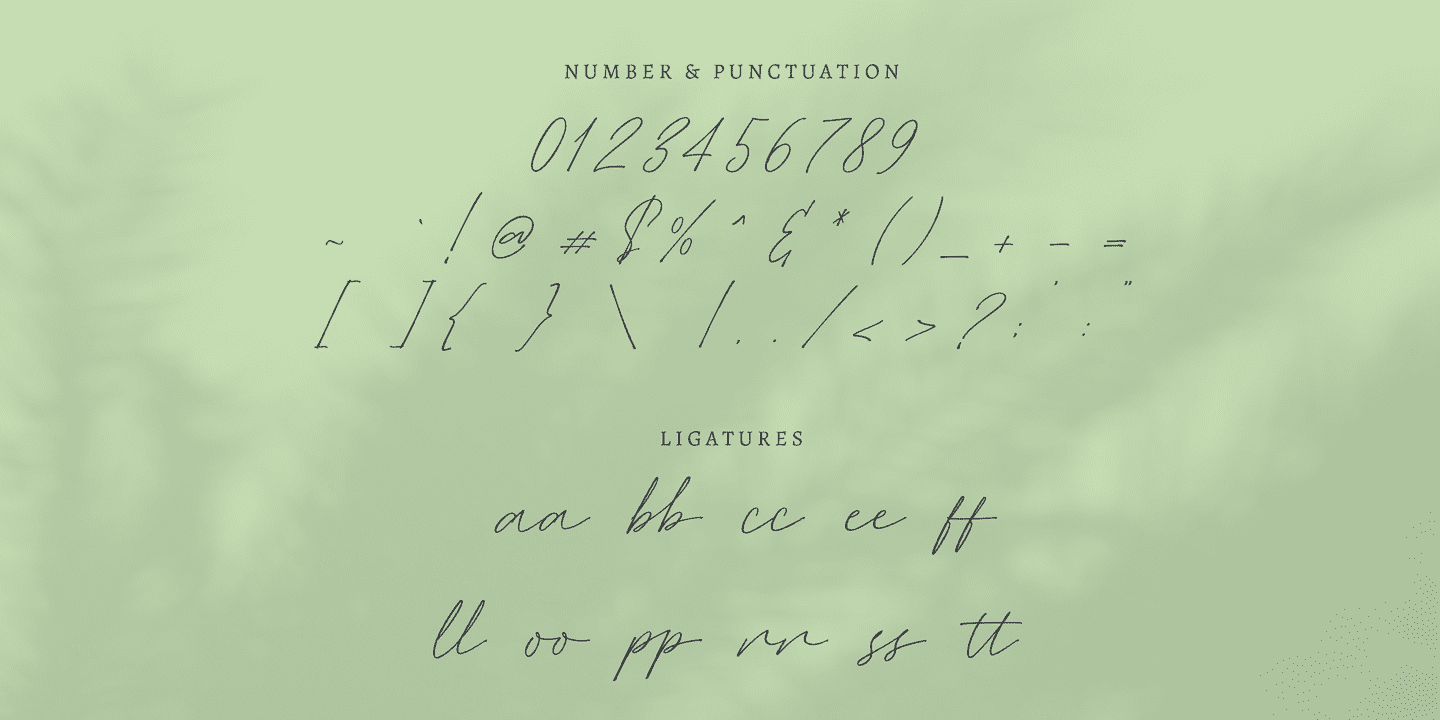 NUMBER & PUNCTUATION
0123456789
~ ` ! @ # $ % ^ & * ( ) _ + - =
[ ] { } \ / . . / < > ? ; : ' "
LIGATURES
aa bb cc ee ff
ll oo pp rr ss tt